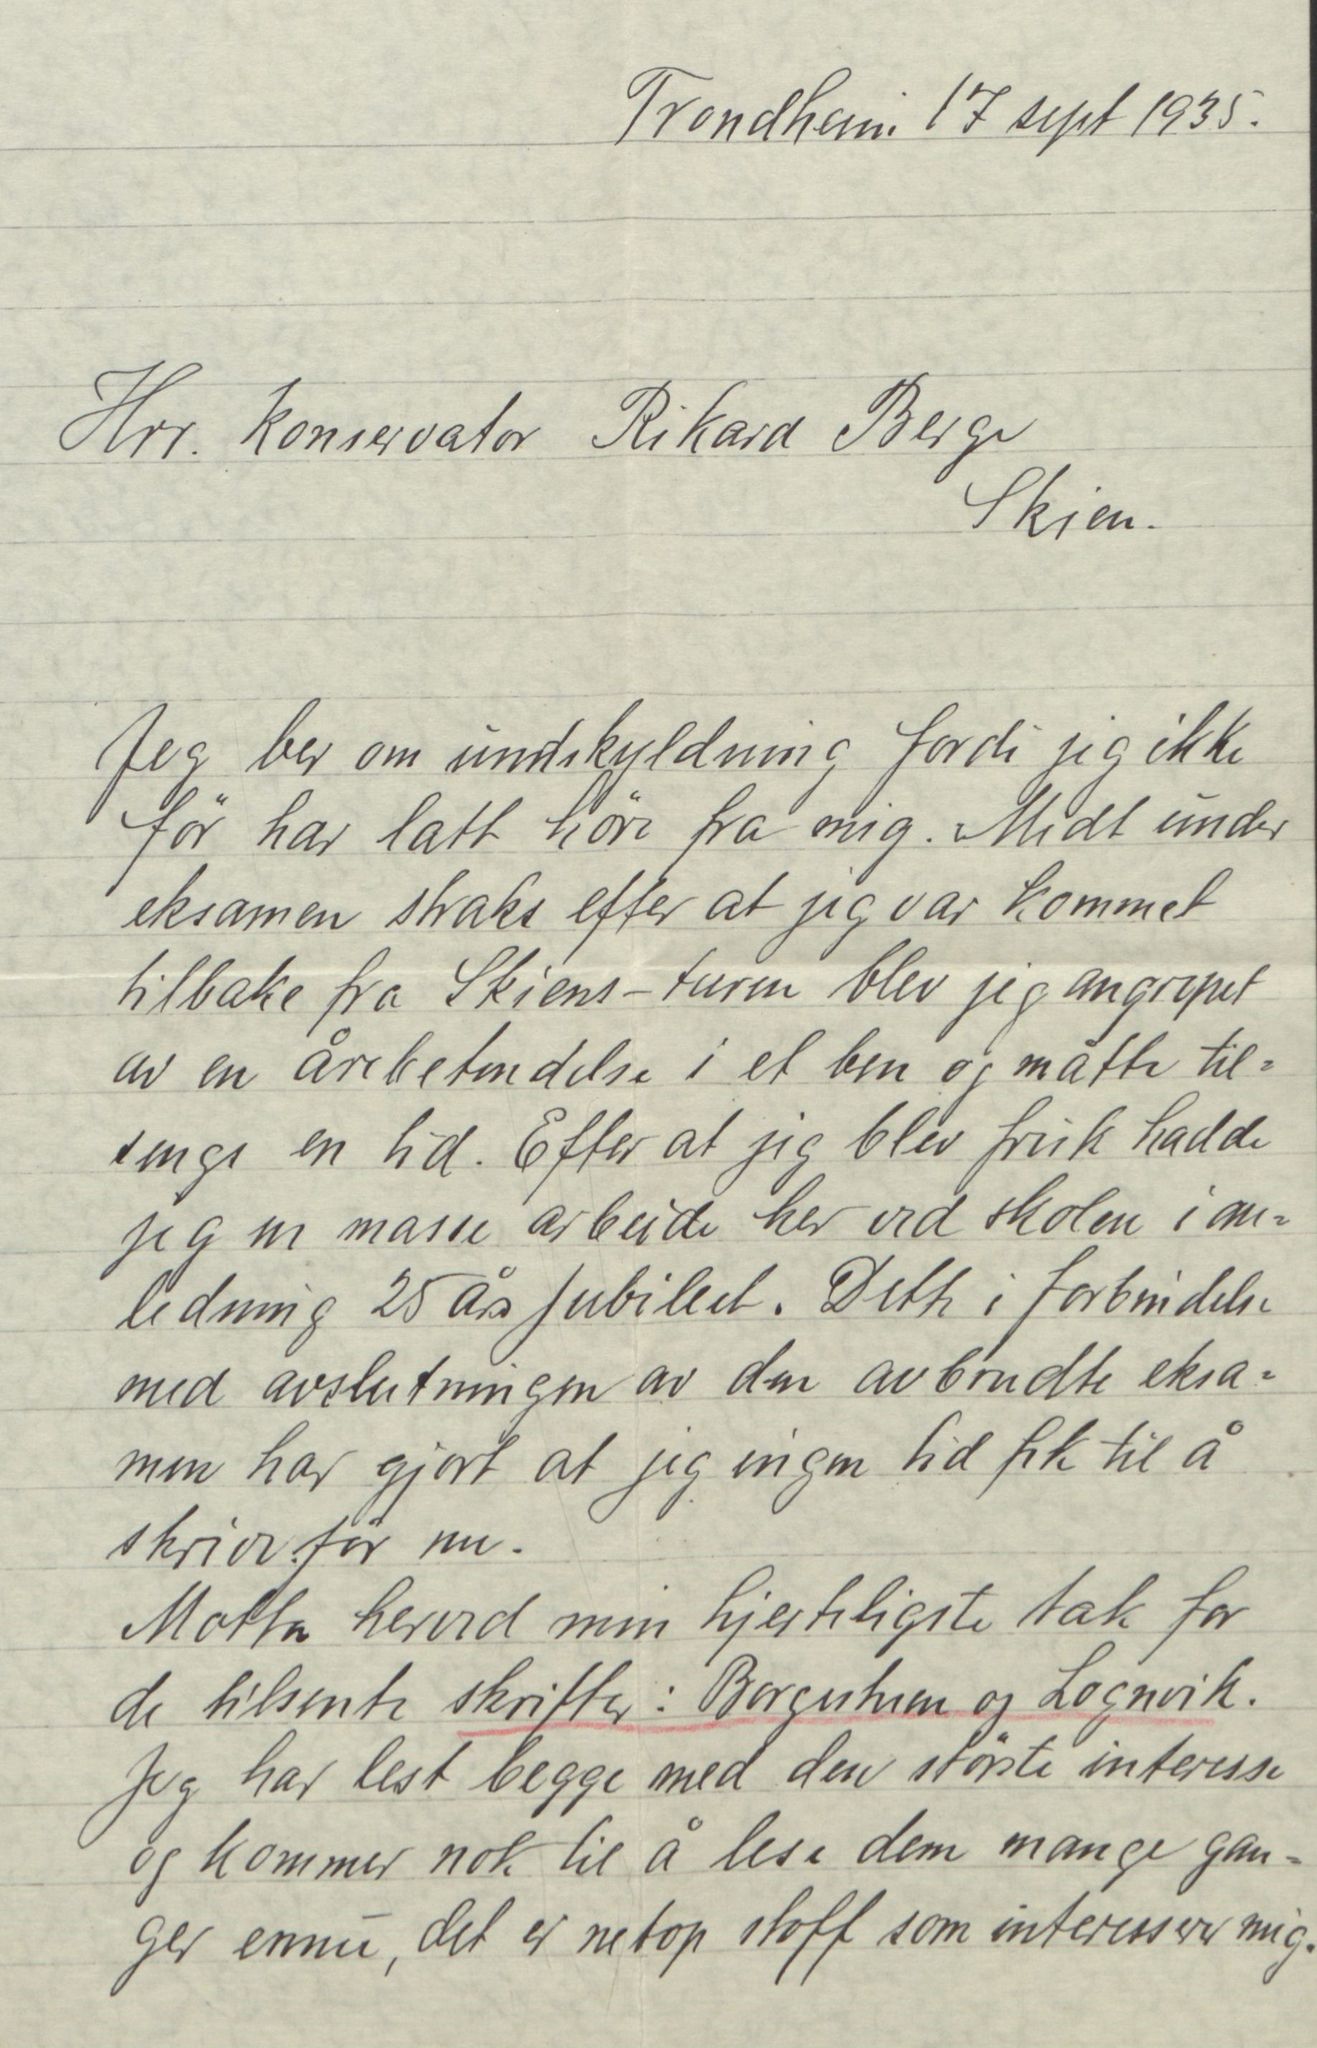 Trondheim 17 sept 1935.
Hrr. Konservator Rikard Berge
Skien.
Jeg ber om undskyldning fordi jeg ikke
för har latt höre fra mig. Midt under
eksamen straks efter at jeg var kommet
tilbake fra Skiens-turen blev jeg angrepet
av en årebetendelse i et ben og måtte til=
sengs en tid. Efter at jeg blev frisk hadde
jeg en masse arbeide her ved skolen i an=
ledning 25 års jubileet. Dette i forbindelse
med avslutningen av den avbrudte eksa=
men har gjort at jeg ingen tid fik til å
skrive för nu.
Motta herved min hjerteligste tak for
de tilsente skrifter: Borgestuen og Lognvik.
Jeg har lest begge med den störste interesse
og kommer nok til å lese dem mange gan=
ger ennu, det er netop stoff som interesserer mig.